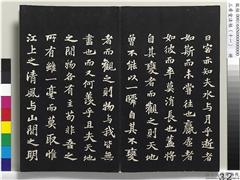 曰客亦知夫水與月乎逝者
如斯而未嘗往也盈虛者
如彼而卒莫消長也蓋將
自其變者而觀之則天地
曾不能以一瞬自其不變
者而觀之則物與我皆無
盡也而又何羨乎且夫天地
之間物各有主苟非吾之
所有雖一毫而莫取惟
江上之清風與山間之明
32